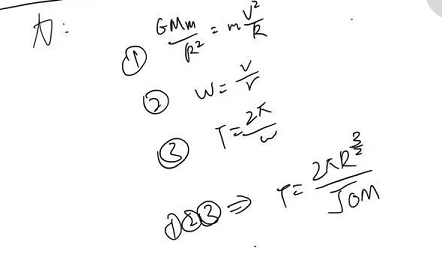 力:
① GMm/R² = m V²/R
② W = V/r
③ T = 2π/w
①②③ ⇒ T = 2πR^(3/2)/√GM